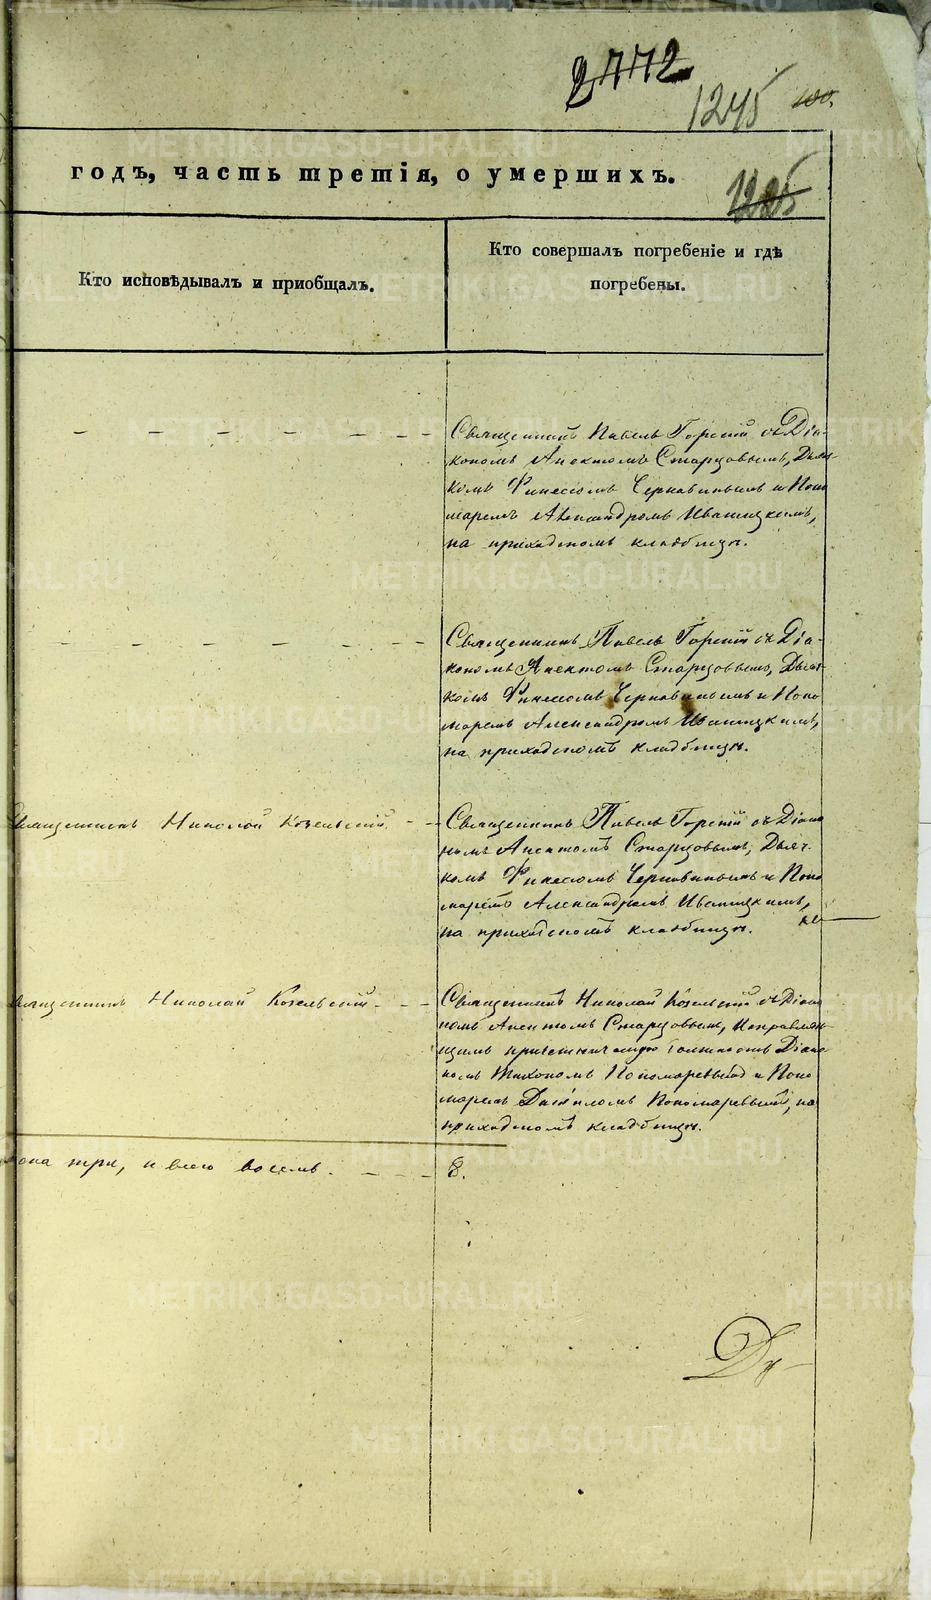 2772
1245 100.
годъ, часть третія, о умершихъ.
1225
Кто исповѣдывалъ и пріобщалъ.
Кто совершалъ погребеніе и гдѣ
погребены.
Священникъ Павелъ Горскій съ Діа-
кономъ Аѳектомъ Старцовымъ, Дьяч-
комъ Финеесомъ Чернавинымъ и Поно
маремъ Александромъ Иваницкимъ,
на приходскомъ кладбищѣ.
Священникъ Павелъ Горскій съ Діа-
кономъ Старцовымъ, Дьяч-
комъ Финеесомъ Чернавинымъ и Поно
маремъ Александромъ Иваницкимъ,
на приходскомъ кладбищѣ.
Священникъ Николай Козельскій.
Священникъ Павелъ Горскій съ Діако
номъ Старцовымъ, Дьяч-
комъ Финеесомъ Чернавинымъ и Поно
маремъ Александромъ Иваницкимъ,
на приходскомъ кладбищѣ.
Священникъ Николай Козельскій
Священникъ Николай Козельскій съ Діако
номъ Старцовымъ, Исправляю-
щимъ причетническую должность Діако
номъ Тихономъ Пономаревымъ и Поно
маремъ Даніиломъ Пономаревымъ, на
приходскомъ кладбищѣ.
пола три, и всего восемь.
8.
METRIKI.GASO-URAL.RU